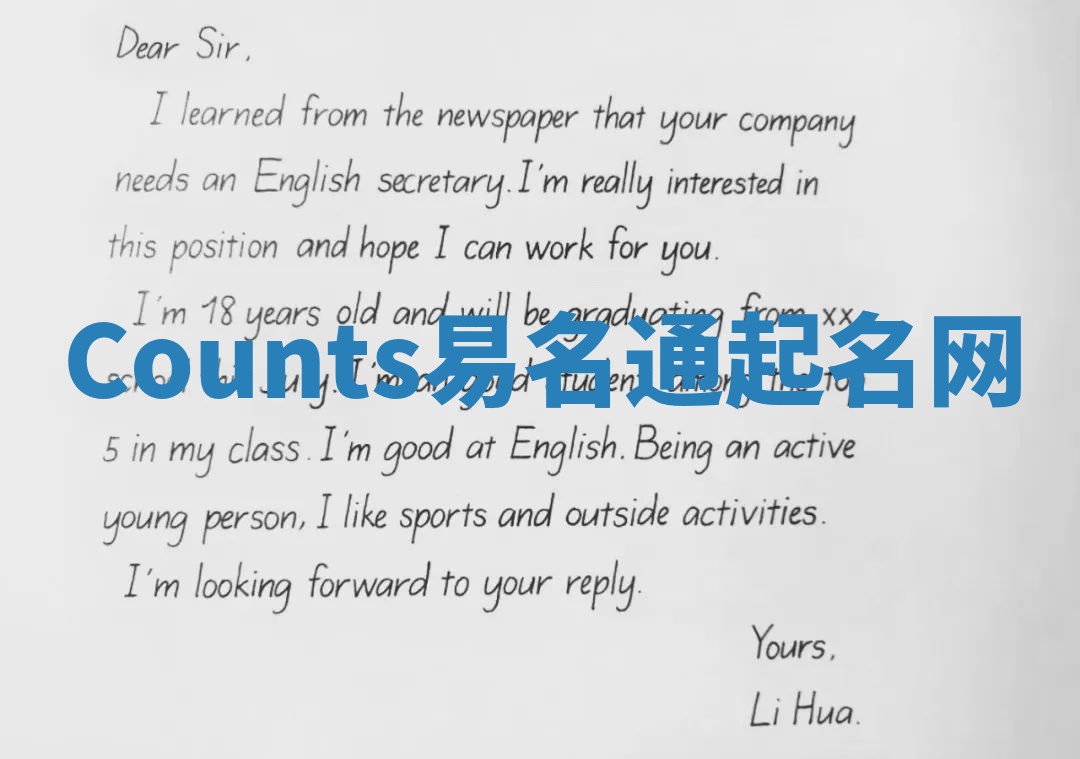 Dear Sir,
I learned from the newspaper that your company
needs an English secretary. I'm really interested in
this position and hope I can work for you.
I'm 18 years old and will be graduating from xx
Counts易名通起名网
school this July. I'm an good student among the top
5 in my class. I'm good at English. Being an active
young person, I like sports and outside activities.
I'm looking forward to your reply.
Yours,
Li Hua.